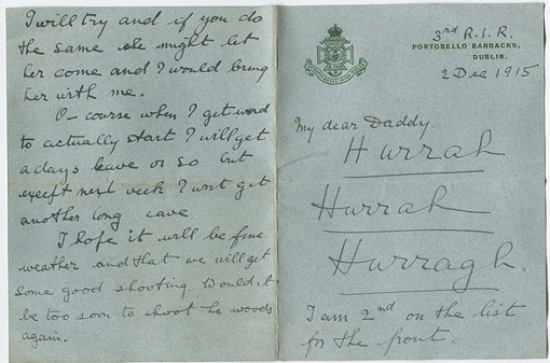 3rd R.I.R.
PORTOBELLO BARRACKS,
DUBLIN.
2 Dec 1915
My dear Daddy.
Hurrah
Hurrah
Hurragh.
I am 2nd on the list
for the front.
I will try and if you do
the same she might let
her come and I would bring
her with me.
O- course when I get word
to actually start I will get
a days leave or so but
except next week I wont get
another long eave
I hope it will be fine
weather and that we will get
some good shooting. Would it
be too soon to shoot he woods
again.